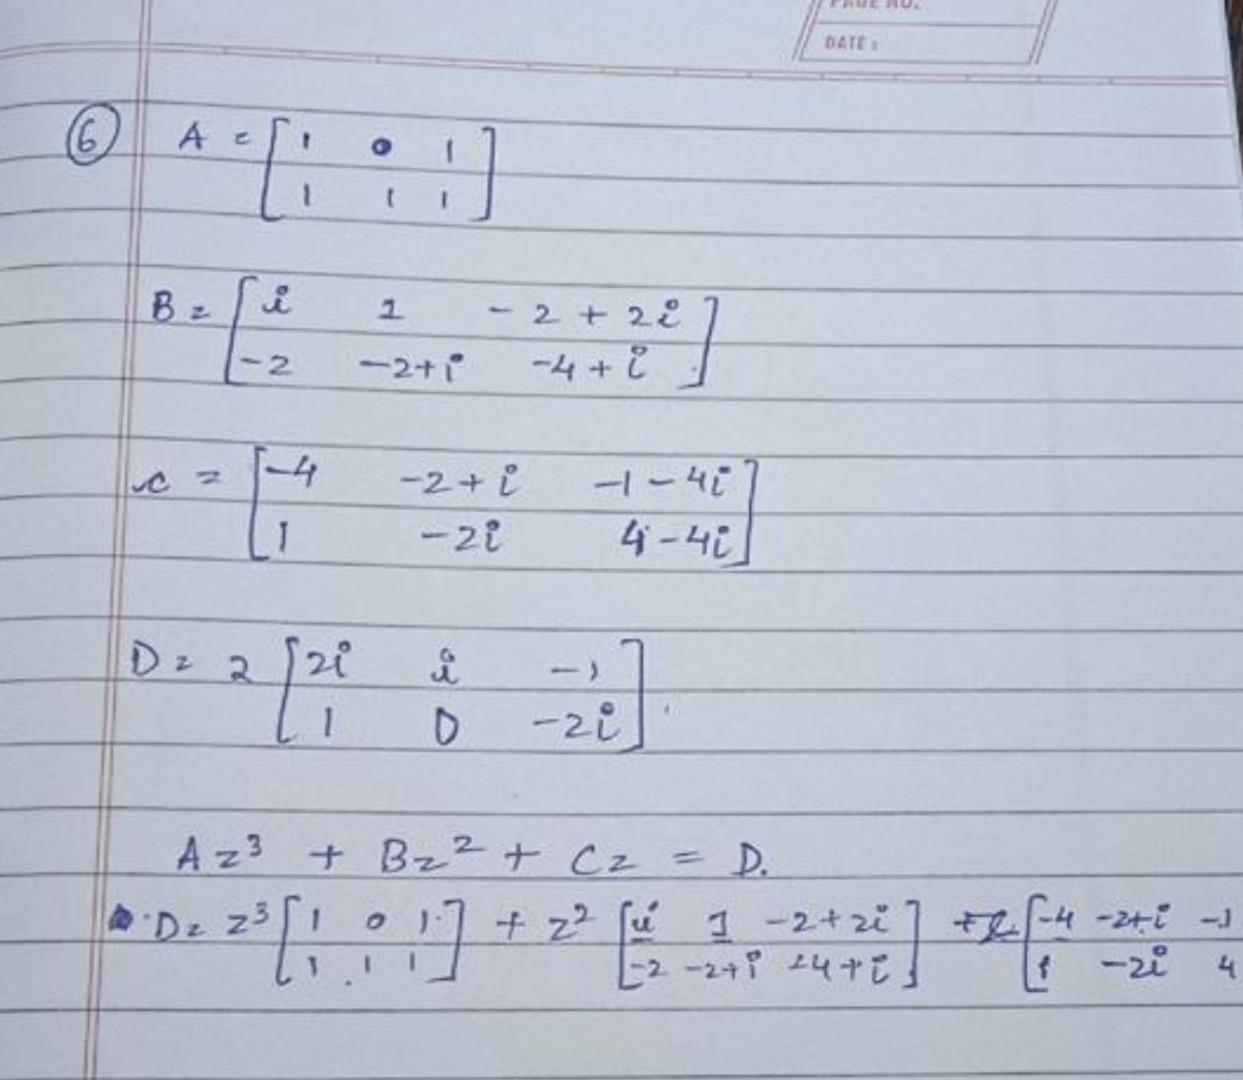 PAGE NO.
DATE :
6 A = [ 1 0 1
1 1 1 ]
B = [ i 1 -2 + 2i
-2 -2+i -4+i ]
C = [ -4 -2+i -1-4i
1 -2i 4-4i ]
D = 2 [ 2i i -1
1 0 -2i ]
Az³ + Bz² + Cz = D.
D = z³ [ 1 0 1 ] + z² [ i 1 -2+2i ] + z [ -4 -2+i -1
1 1 1 -2 -2+i -4+i 1 -2i 4